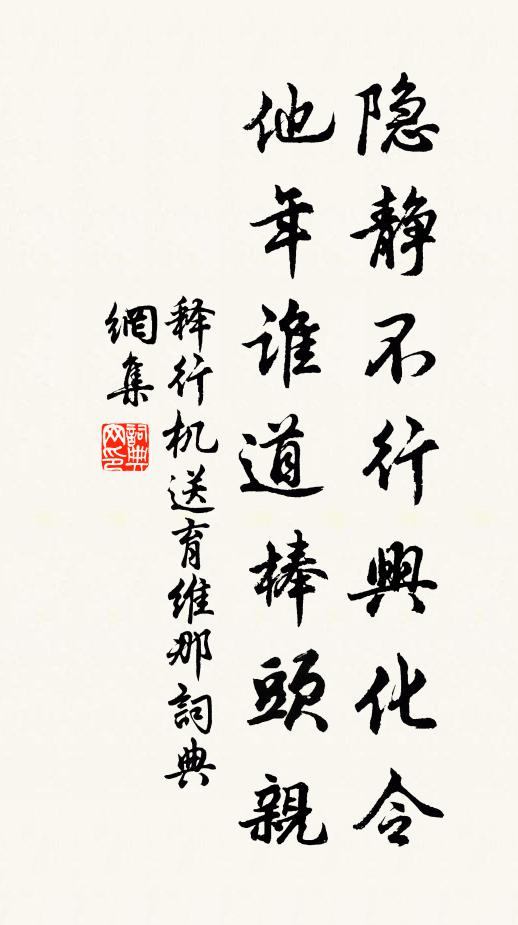 隐静不行興化令
他年谁道棒頭親
释行机送育维那詞典
網集
詞典网印